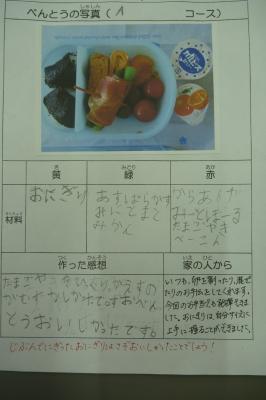 べんとうの写真（ A コース）
黄 緑 赤
材料
おにぎり
あすぱらがす
みにとまと
みかん
からあげ
みーとぼーる
たまごやき
べーこん
作った感想
家の人から
たまごやきをひっくりかえすの
がむずかしかったです。おべん
とうおいしかったです。
いつも、卵を割ったり、混ぜ
たりのお手伝いをしてくれます。
今回のお弁当でも発揮できま
した。おにぎりは、自分サイズに
上手に握ることができました。
じぶんでにぎったおにぎりはさぞおいしかったことでしょう！